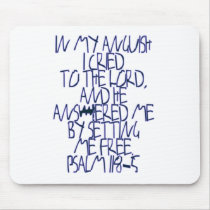 IN MY ANGUISH
I CRIED
TO THE LORD,
AND HE
ANSWERED ME
BY SETTING
ME FREE
PSALM 118-5